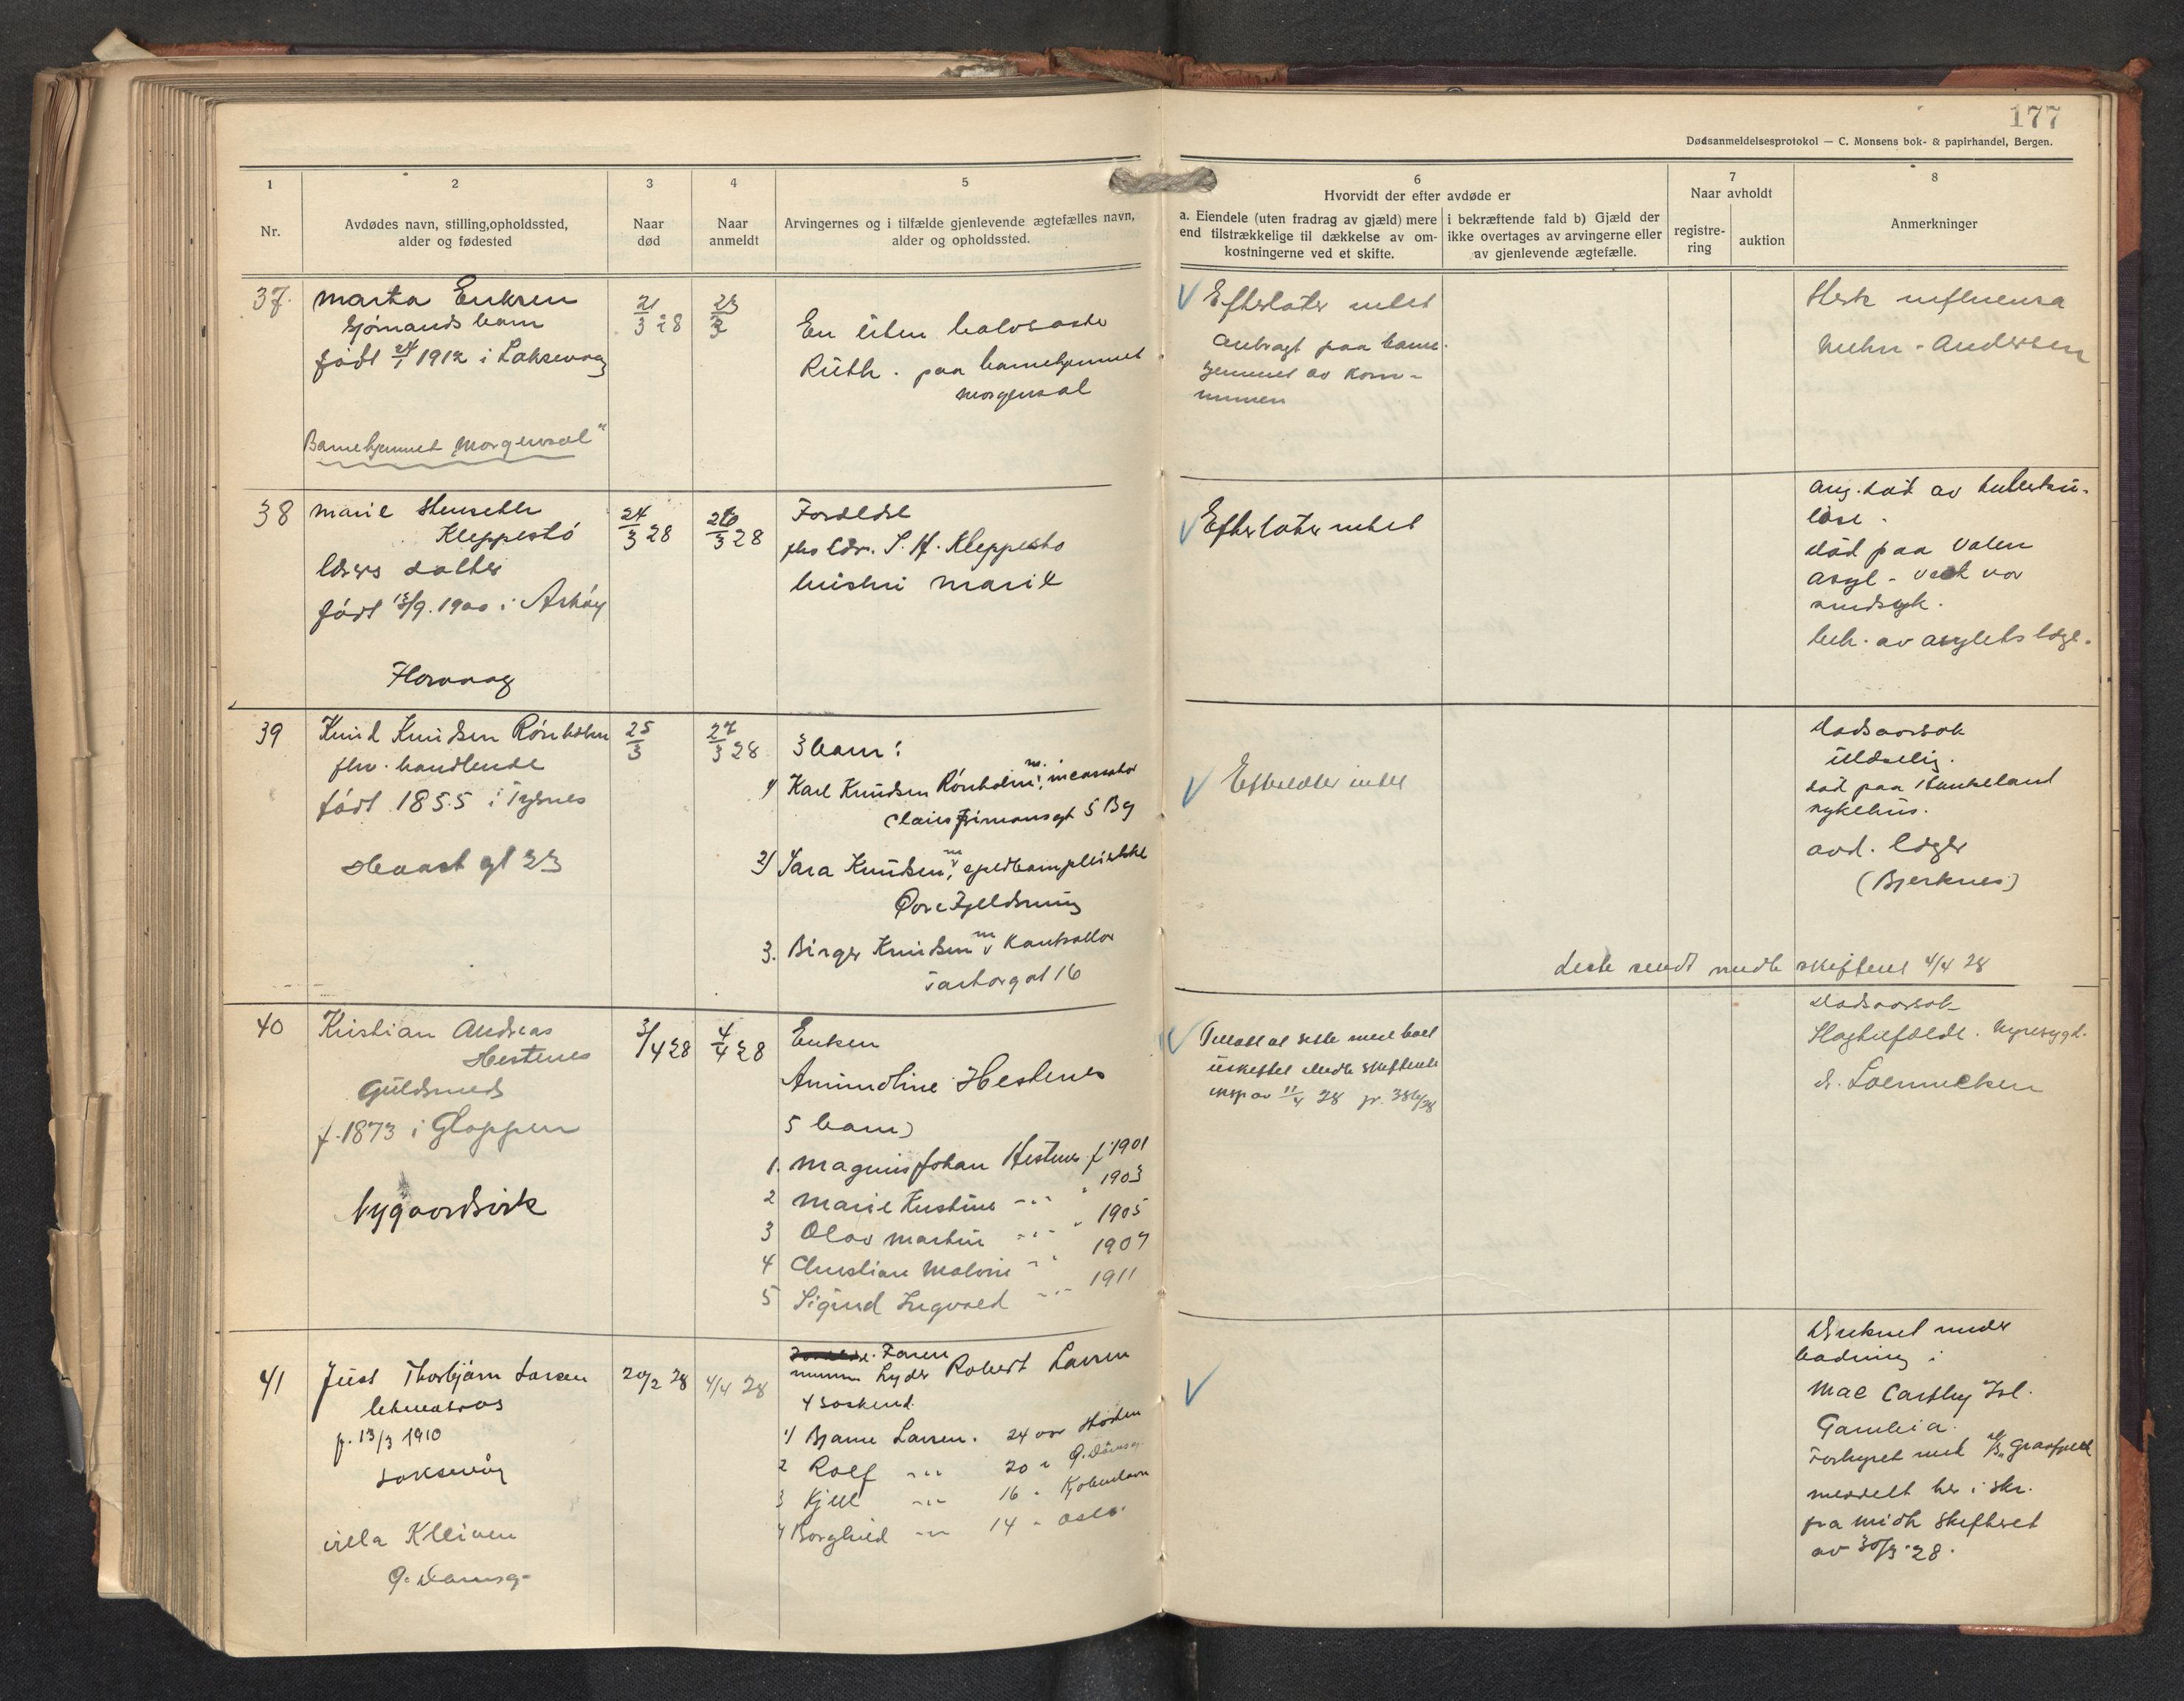 177
Dødsanmeldelsesprotokol — C. Monsens bok- & papirhandel, Bergen.
1
Nr.
2
Avdødes navn, stilling, opholdssted,
alder og fødested
3
Naar
død
4
Naar
anmeldt
5
Arvingernes og i tilfælde gjenlevende ægtefælles navn,
alder og opholdssted.
6
Hvorvidt der efter avdøde er
a. Eiendele (uten fradrag av gjæld) mere
end tilstrækkelige til dækkelse av om-
kostningerne ved et skifte.
i bekræftende fald b) Gjæld der
ikke overtages av arvingerne eller
av gjenlevende ægtefælle.
7
Naar avholdt
registre-
ring
auktion
8
Anmerkninger
37.
Marta Eriksen
Sjømands barn
født 24/1 1912 i Laksevaag
Barnehjemmet Morgensol"
21/3 28
23/3
En liten halvsøster
Ruth. paa barnehjemmet
Morgensol
Efterlater intet
Anbragt paa barne-
hjemmet av kom-
munen
influensa
Andersen
38
Marie
Kleppestø
lærers datter
født 13/9. 1900 i Askøy
Florvaag
24/3 28
26/3 28
Forældre
fhv lær. S. H. Kleppestø
hustru Marie
Efterlater intet
Ang. død av tuberku-
lose.
død paa Valen
asyl -
sindsyk.
beh. av asylets læge.
39
Knud Knudsen Rönholm
fhv. handlende
født 1855 i Tysnes
gt 23
25/3
27/3 28
3 barn:
1) Karl Knudsen Rönholm, m. incassator
Claus Frimansgt 5 Bg
2) Sara Knudsen, spedbarnpleierske
Øvre Fjeldsmug
3. Birger Knudsen Kontrollør
16
Efterlater intet
Dødsaarsak
uldselig.
død paa Haukeland
sykehus.
avd. læger
(Bjerknes)
sendt midh skifteret 4/4 28
40
Kristian Andreas
Hestenes
Guldsmed
f. 1873 i Gloppen
Nygaardsvik
3/4 28
4/4 28
Enken
Hestenes
5 barn)
1. Magnus Johan Hestenes f. 1901
2 Marie Kristine -"- " 1903
3 Olav Martin -"- " 1905
4 Christian Malvin -"- 1907
5 Sigurd Ingvald -"- 1911
Tillatt at sitte med boet
uskiftet Midh skifterets
exsp av 11/4 28 jr. 386/28
Dødsaarsak
Slagtilfælde. Nyresygd.
dr. Loennechen
41
Just Thorbjørn Larsen
letmatros
f. 13/3 1910
Laksevåg
villa Kleiven
G. Damsg.
20/2 28
4/4 28
Faren
Lyder Robert Larsen
4 søskend.
1) Bjarne Larsen. 24 aar
2 Rolf -"- 20 " G. Damsg.
3 Kjell -"- 16 " Kjøbenhavn
4 Borghild -"- 14 " Oslo.
Druknet under
badning i
Mac Carthy Isl.
Gambia.
Forhyret med
meddelt her i skr.
fra Midh Skifteret
av 30/3 28.